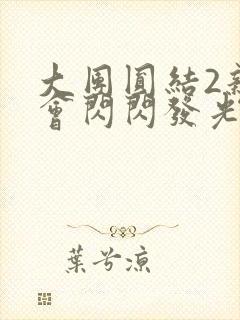 大團圓結2亲
會閃閃發光
葉兮涼